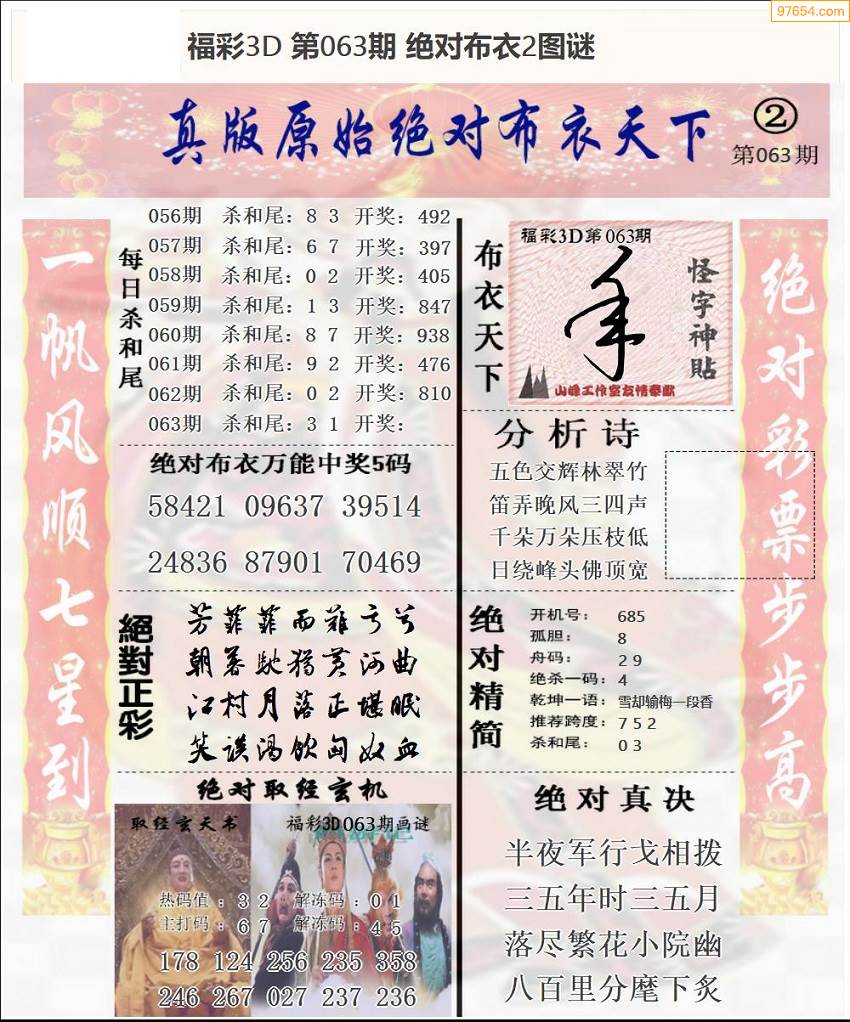 97654.com
福彩3D 第063期 绝对布衣2图谜
真版原始绝对布衣天下
②
第063期
一帆风顺七星到
每日杀和尾
056期 杀和尾：8 3 开奖：492
057期 杀和尾：6 7 开奖：397
058期 杀和尾：0 2 开奖：405
059期 杀和尾：1 3 开奖：847
060期 杀和尾：8 7 开奖：938
061期 杀和尾：9 2 开奖：476
062期 杀和尾：0 2 开奖：810
063期 杀和尾：3 1 开奖：
绝对布衣万能中奖5码
58421 09637 39514
24836 87901 70469
絕對正彩
芳菲菲而难亏兮
朝暮驰猎黄河曲
江村月落正堪眠
笑谈渴饮匈奴血
绝对取经玄机
取经玄天书
福彩3D063期画谜
热码值：3 2 解冻码：0 1
主打码：6 7 解冻码：4 5
178 124 256 235 358
246 267 027 237 236
布衣天下
福彩3D第063期
怪字神貼
山峰工作室友情奉献
分析诗
五色交辉林翠竹
笛弄晚风三四声
千朵万朵压枝低
日绕峰头佛顶宽
绝对精简
开机号： 685
孤胆： 8
舟码： 2 9
绝杀一码：4
乾坤一语：雪却输梅一段香
推荐跨度：7 5 2
杀和尾： 0 3
绝对真决
半夜军行戈相拨
三五年时三五月
落尽繁花小院幽
八百里分麾下炙
绝对彩票步步高